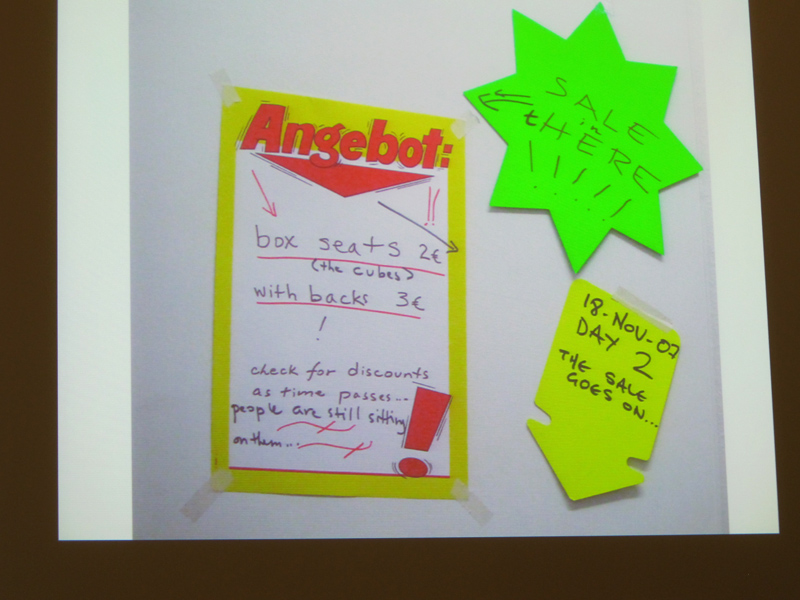 Angebot:
!!
box seats 2€
(the cubes)
with backs 3€
!
check for discounts
as time passes...
people are still sitting
on them...
!
SALE
in
tHERE
!!!!!
18-NOV-07
DAY 2
THE SALE
GOES ON...